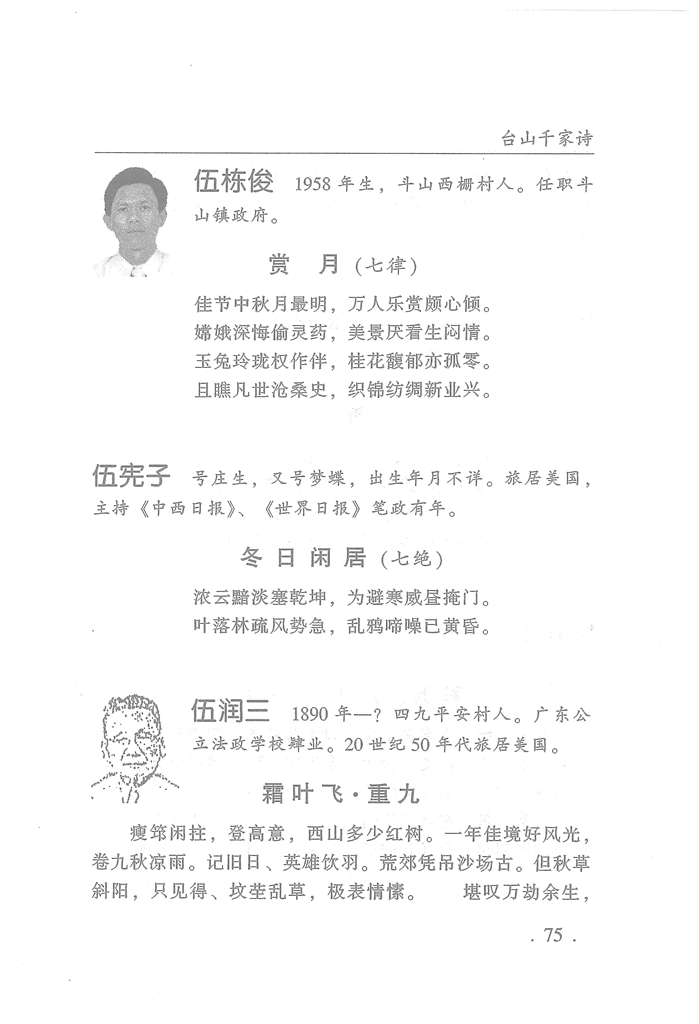 台山千家诗
伍栋俊 1958 年生，斗山西栅村人。任职斗
山镇政府。
赏 月（七律）
佳节中秋月最明，万人乐赏颇心倾。
嫦娥深悔偷灵药，美景厌看生闷情。
玉兔玲珑权作伴，桂花馥郁亦孤零。
且瞧凡世沧桑史，织锦纺绸新业兴。
伍宪子 号庄生，又号梦蝶，出生年月不详。旅居美国，
主持《中西日报》、《世界日报》笔政有年。
冬日闲居（七绝）
浓云黯淡塞乾坤，为避寒威昼掩门。
叶落林疏风势急，乱鸦啼噪已黄昏。
伍润三 1890 年—？四九平安村人。广东公
立法政学校肄业。20 世纪 50 年代旅居美国。
霜叶飞·重九
瘦筇闲拄，登高意，西山多少红树。一年佳境好风光，
卷九秋凉雨。记旧日、英雄饮羽。荒郊凭吊沙场古。但秋草
斜阳，只见得、坟茔乱草，极表情愫。 堪叹万劫余生，
. 75 .